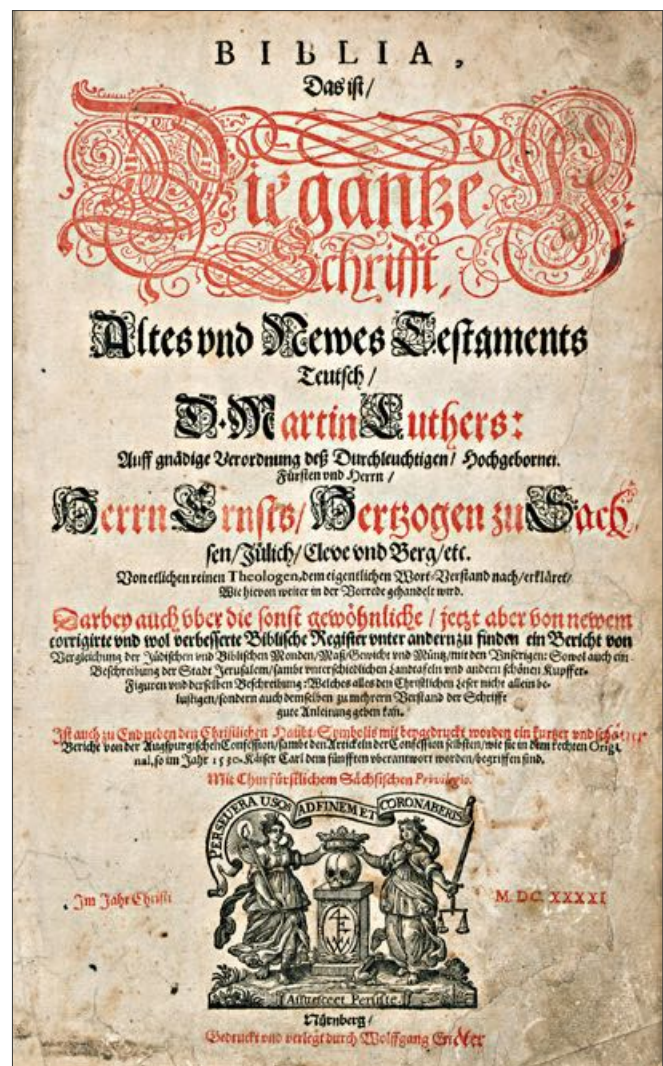 BIBLIA,
Das ist/
Die gantze H.
Schrifft,
Altes vnd Newes Testaments
Teutsch/
D. Martin Luthers:
Auff gnädige Verordnung deß Durchleuchtigen/ Hochgebornen.
Fürsten vnd Herrn/
Herrn Ernsts/ Hertzogen zu Sach-
sen/Jülich/Cleve vnd Berg/etc.
Von etlichen reinen Theologen, dem eigentlichen Wort-Verstand nach/erkläret/
Wie hievon weiter in der Vorrede gehandelt wird.
Darbey auch vber die sonst gewöhnliche/ jetzt aber von newem
corrigirte vnd wol verbesserte Biblische Register vnter andern zu finden ein Bericht von
Vergleichung der Jüdischen vnd Biblischen Monden/Maß/Gewicht vnd Müntz/mit den Vnserigen: Sowol auch ein
Beschreibung der Stadt Jerusalem/sambt vnterschiedlichen Landtafeln vnd andern schönen Kupffer-
Figuren vnd derselben Beschreibung: Welches alles den Christlichen Leser nicht allein be-
lustigen/sondern auch demselben zu mehrern Verstand der Schrifft
gute Anleitung geben kan.
Ist auch zu End neben den Christlichen Haubt-Symbolis mit beygedruckt worden ein kurtzer vnd schöner
Bericht von der Augspurgischen Confession/sambt den Artickeln der Confession selbsten/wie sie in dem rechten Origi-
nal, so im Jahr 1530. Käiser Carl dem fünfften vberantwort worden/begriffen sind.
Mit Churfürstlichem Sächsischen Privilegio.
PERSEVERA USQ3 AD FINEM ET CORONABERIS
Im Jahr Christi
M. DC. XXXXI
Assuesce et Feruiste.
Nürnberg/
Gedruckt vnd verlegt durch Wolffgang Endter